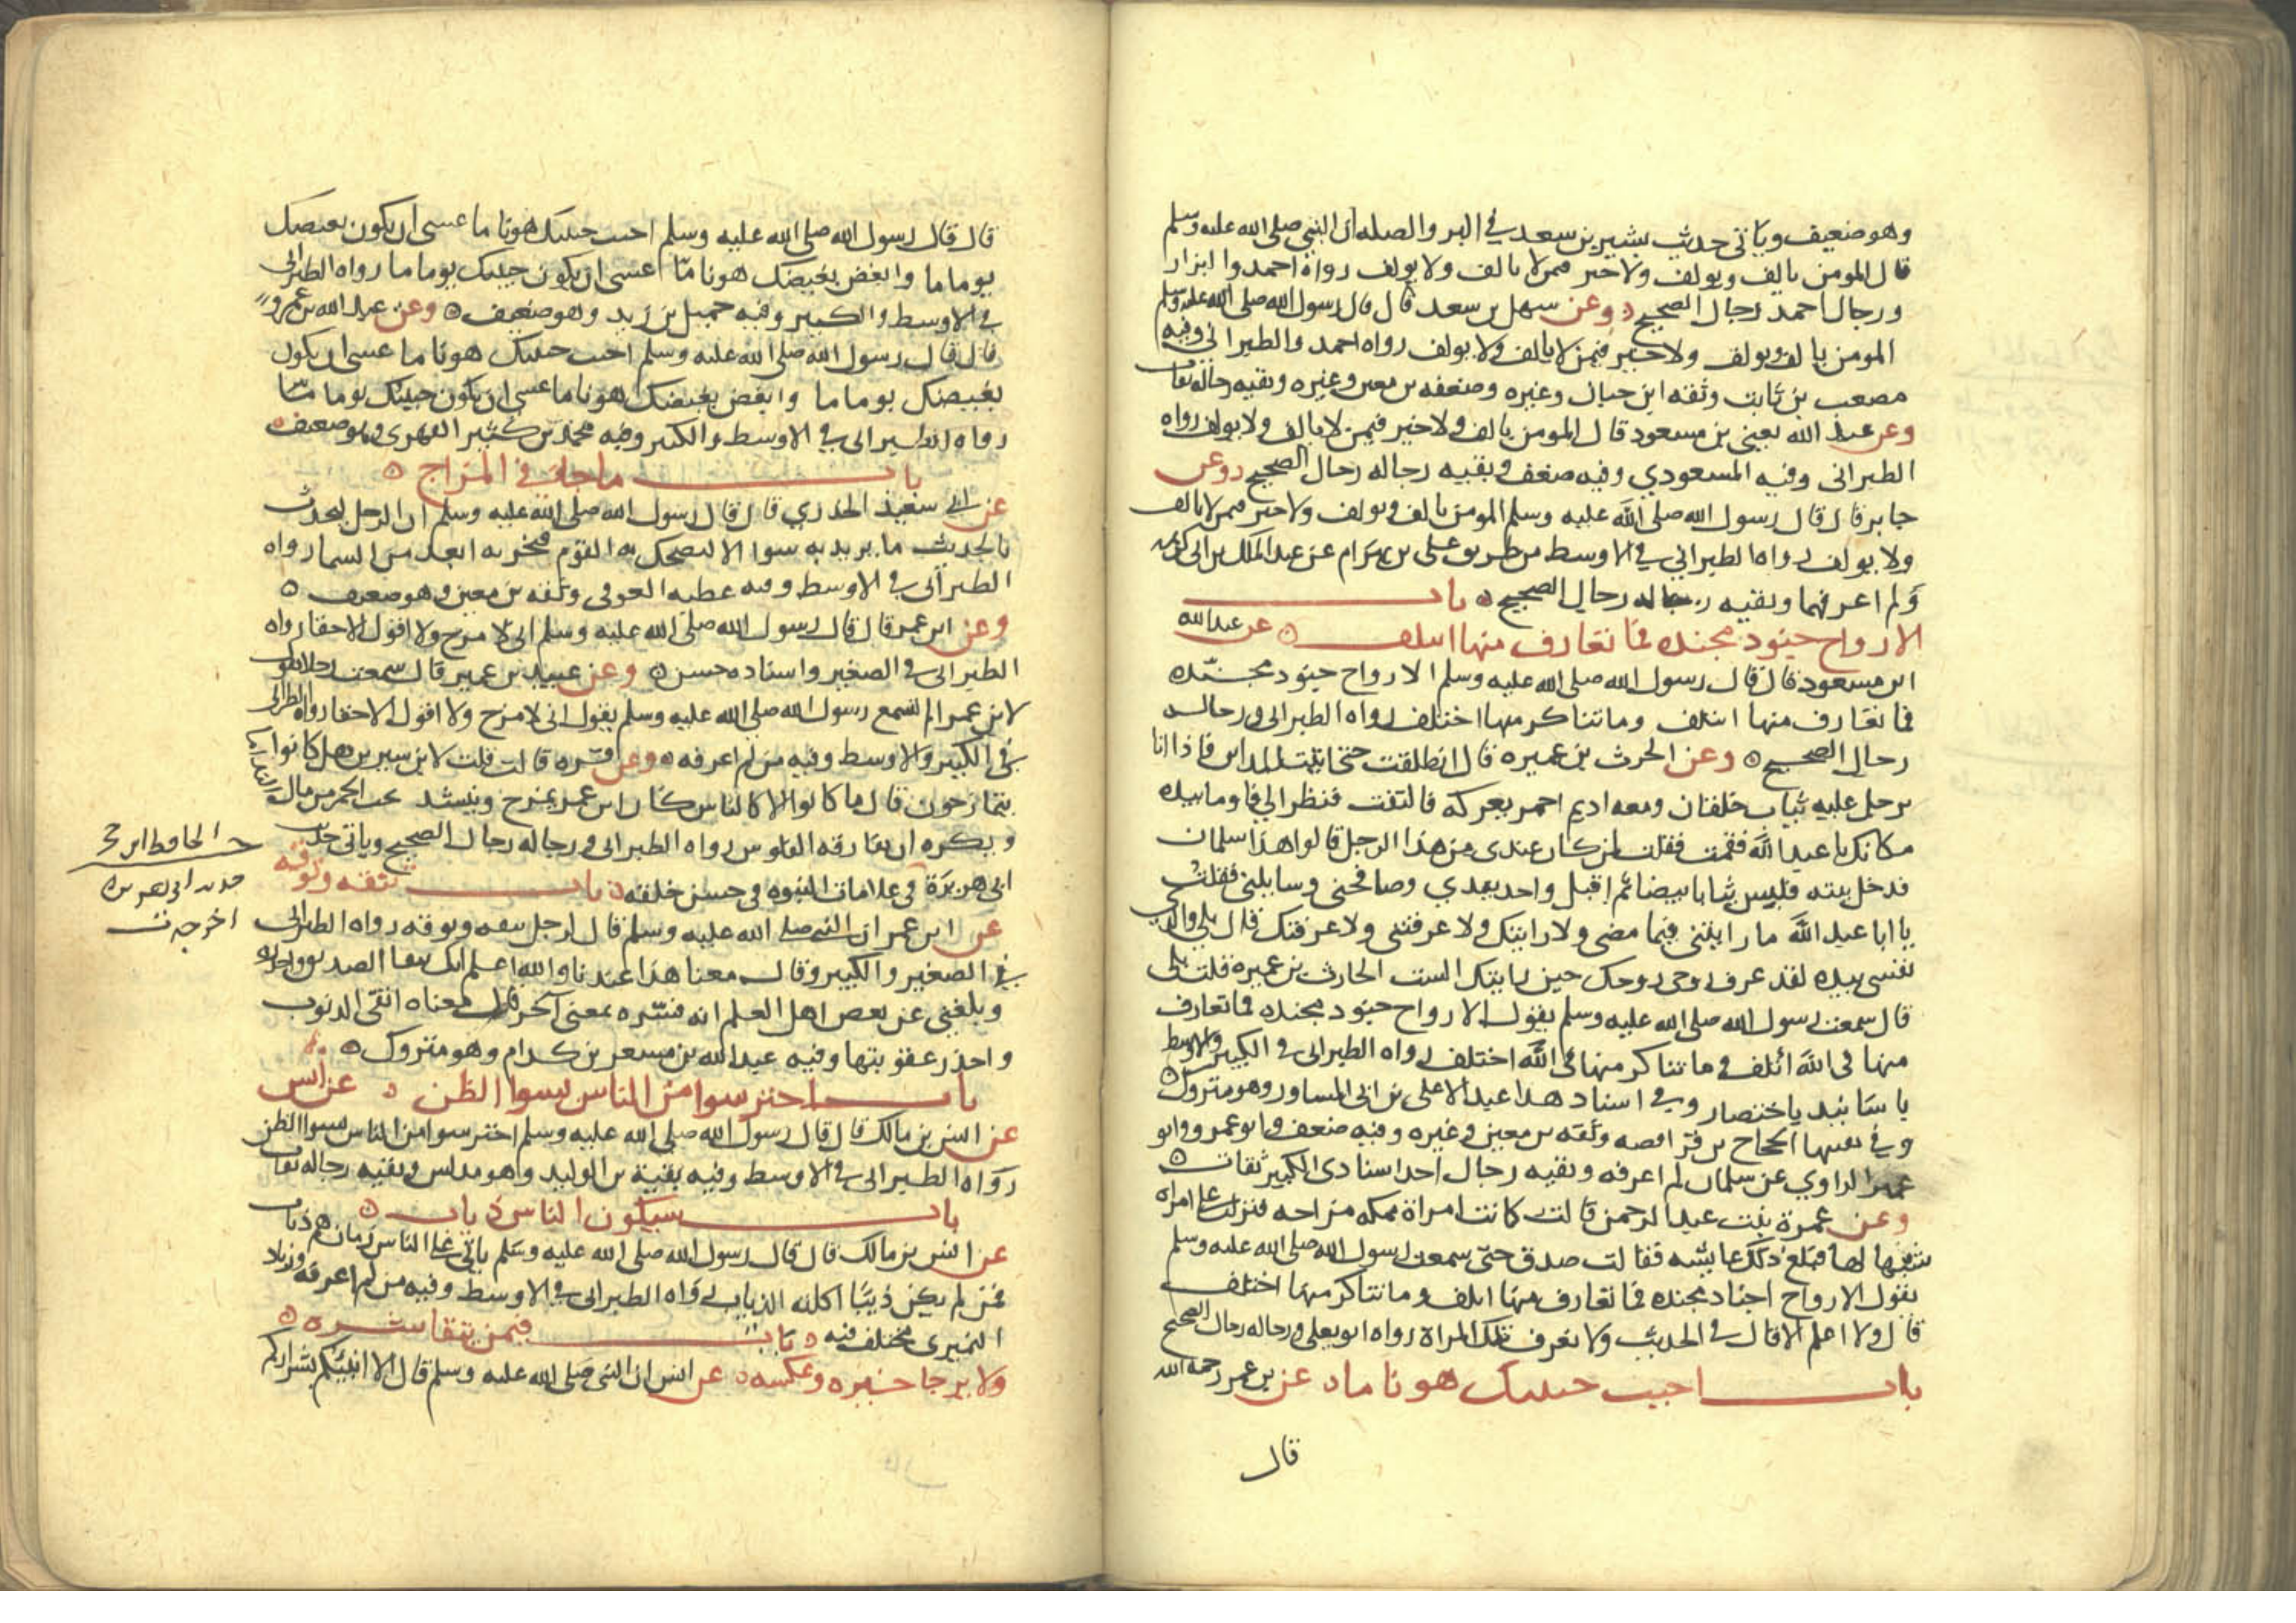 وهو ضعيف وياتى حديث بشير بن سعد في البر والصله ان النبي صلى الله عليه وسلم
قال المومن يالف ويولف ولا خير فيمن لا يالف ولا يولف رواه احمد والبزار
ورجال احمد رجال الصحيح وعن سهل بن سعد قال قال رسول الله صلى الله عليه وسلم
المومن يالف ويولف ولا خير فيمن لا يالف ولا يولف رواه احمد والطبراني وفيه
مصعب بن ثابت وثقه ابن حبان وغيره وضعفه بن معين وغيره وبقيه رجاله ثقات
وعن عبد الله يعنى بن مسعود قال المومن يالف ولا خير فيمن لا يالف ولا يولف رواه
الطبرانى وفيه المسعودي وفيه ضعف وبقيه رجاله رجال الصحيح وعن
جابر قال قال رسول الله صلى الله عليه وسلم المومن يالف ويولف ولا خير فيمن لا يالف
ولا يولف رواه الطبراني في الاوسط من طريق على بن بهرام عن عبد الملك بن ابى كريمه
ولم اعرفهما وبقيه رجاله رجال الصحيح باب
الارواح جنود مجنده فما تعارف منها ائتلف عن عبد الله
ابن مسعود قال قال رسول الله صلى الله عليه وسلم الارواح جنود مجنده
فما تعارف منها ائتلف وما تناكر منها اختلف رواه الطبرانى ورجاله
رجال الصحيح وعن الحرث بن عميره قال انطلقت حتى اتيت المداين فاذا انا
برجل عليه ثياب خلقان ومعه اديم احمر يعركه فالتفت فنظر الي فاوما بيده
مكانك يا عبد الله فقمت فقلت لمن كان عندى من هذا الرجل قالوا هذا سلمان
فدخل بيته فلبس ثيابا بيضا ثم اقبل واخذ بيدي وصافحنى وسايلنى فقلت
يا ابا عبد الله ما رايتنى فيما مضى ولا رايتك ولا عرفتنى ولا عرفتك قال بلى والذى
نفسى بيده لقد عرف روحى روحك حين رايتك الست الحارث بن عميره قلت بلى
قال سمعت رسول الله صلى الله عليه وسلم يقول الارواح جنود مجنده فما تعارف
منها في الله ائتلف وما تناكر منها في الله اختلف رواه الطبرانى في الكبير والاوسط
باسانيد باختصار وفي اسناد هذا عبد الاعلى بن ابى المساور وهو متروك
وفي بعضها الحجاج بن فرافصه وثقه بن معين وغيره وفيه ضعف وابو عمر وابو
عمير الراوي عن سلمان لم اعرفه وبقيه رجال احد اسنادى الكبير ثقات
وعن عمرة بنت عبد الرحمن قالت كانت امراة بمكه مزاحه فنزلت على امراه
شبهها لها فبلغ ذلك عايشه فقالت صدق حبى سمعت رسول الله صلى الله عليه وسلم
يقول الارواح اجناد مجنده فما تعارف منها ائتلف وما تناكر منها اختلف
قال ولا اعلم الا قال في الحديث ولا نعرف تلك المراة رواه ابو يعلى ورجاله رجال الصحيح
باب احبب حبيبك هونا ما عن بن عمر رحمه الله
قال
قال قال رسول الله صلى الله عليه وسلم احبب حبيبك هونا ما عسى ان يكون بغيضك
يوما ما وابغض بغيضك هونا ما عسى ان يكون حبيبك يوما ما رواه الطبرانى
في الاوسط والكبير وفيه جميل بن زيد وهو ضعيف وعن عبد الله بن عمرو
قال قال رسول الله صلى الله عليه وسلم احبب حبيبك هونا ما عسى ان يكون
بغيضك يوما ما وابغض بغيضك هونا ما عسى ان يكون حبيبك يوما ما
رواه الطبرانى في الاوسط والكبير وفيه محمد بن كثير الفهرى وهو ضعيف
باب ما جاء في المزاح
عن ابى سعيد الخدري قال قال رسول الله صلى الله عليه وسلم ان الرجل ليحدث
بالحديث ما يريد به سوا الا ليضحك به القوم فيخر به ابعد من السما رواه
الطبرانى في الاوسط وفيه عطيه العوفى وثقه بن معين وهو ضعيف
وعن ابن عمر قال قال رسول الله صلى الله عليه وسلم انى لا مزح ولا اقول الا حقا رواه
الطبرانى في الصغير واسناده حسن وعن عبيد بن عمير قال سمعت رجلا يقول
لابن عمر الم تسمع رسول الله صلى الله عليه وسلم يقول انى لا مزح ولا اقول الا حقا رواه الطبرانى
في الكبير والاوسط وفيه من لم اعرفه وعن قره قالت قلت لابن سيرين هل كانوا
يتمازحون قال ما كانوا الا كالناس كان ابن عمر يمزح وينشد يحب الخمر من مال
ويكره ان تفارقه الفلوس رواه الطبرانى ورجاله رجال الصحيح وياتى حديث
ابى هريرة في علامات النبوه في حسن خلقه باب تنقه وتوقه
عن ابن عمر ان النبى صلى الله عليه وسلم قال لرجل تنقه وتوقه رواه الطبرانى
في الصغير والكبير وقال معنا هذا عندنا والله اعلم اتك تنقا الصديق واحذره
وبلغني عن بعض اهل العلم انه فسره بمعنى آخر قال معناه اتقى الذنوب
واحذر عقوبتها وفيه عبد الله بن مسعر بن كدام وهو متروك
باب احترسوا من الناس بسوا الظن عن انس
عن انس بن مالك قال قال رسول الله صلى الله عليه وسلم احترسوا من الناس بسوا الظن
رواه الطبرانى في الاوسط وفيه بقية بن الوليد وهو مدلس وبقيه رجاله ثقات
باب سيكون الناس ذياب
عن انس بن مالك قال قال رسول الله صلى الله عليه وسلم ياتى على الناس زمان هم ذياب
فمن لم يكن ذيبا اكلته الذياب رواه الطبرانى في الاوسط وفيه من لم اعرفه وزياد
النميرى مختلف فيه باب فيمن يتقا شره
ولا يرجا خيره وعكسه عن انس ان النبى صلى الله عليه وسلم قال الا انبيكم بشراركم
الحافظ ابن حجر
حديث ابى هريره
اخرجه ت